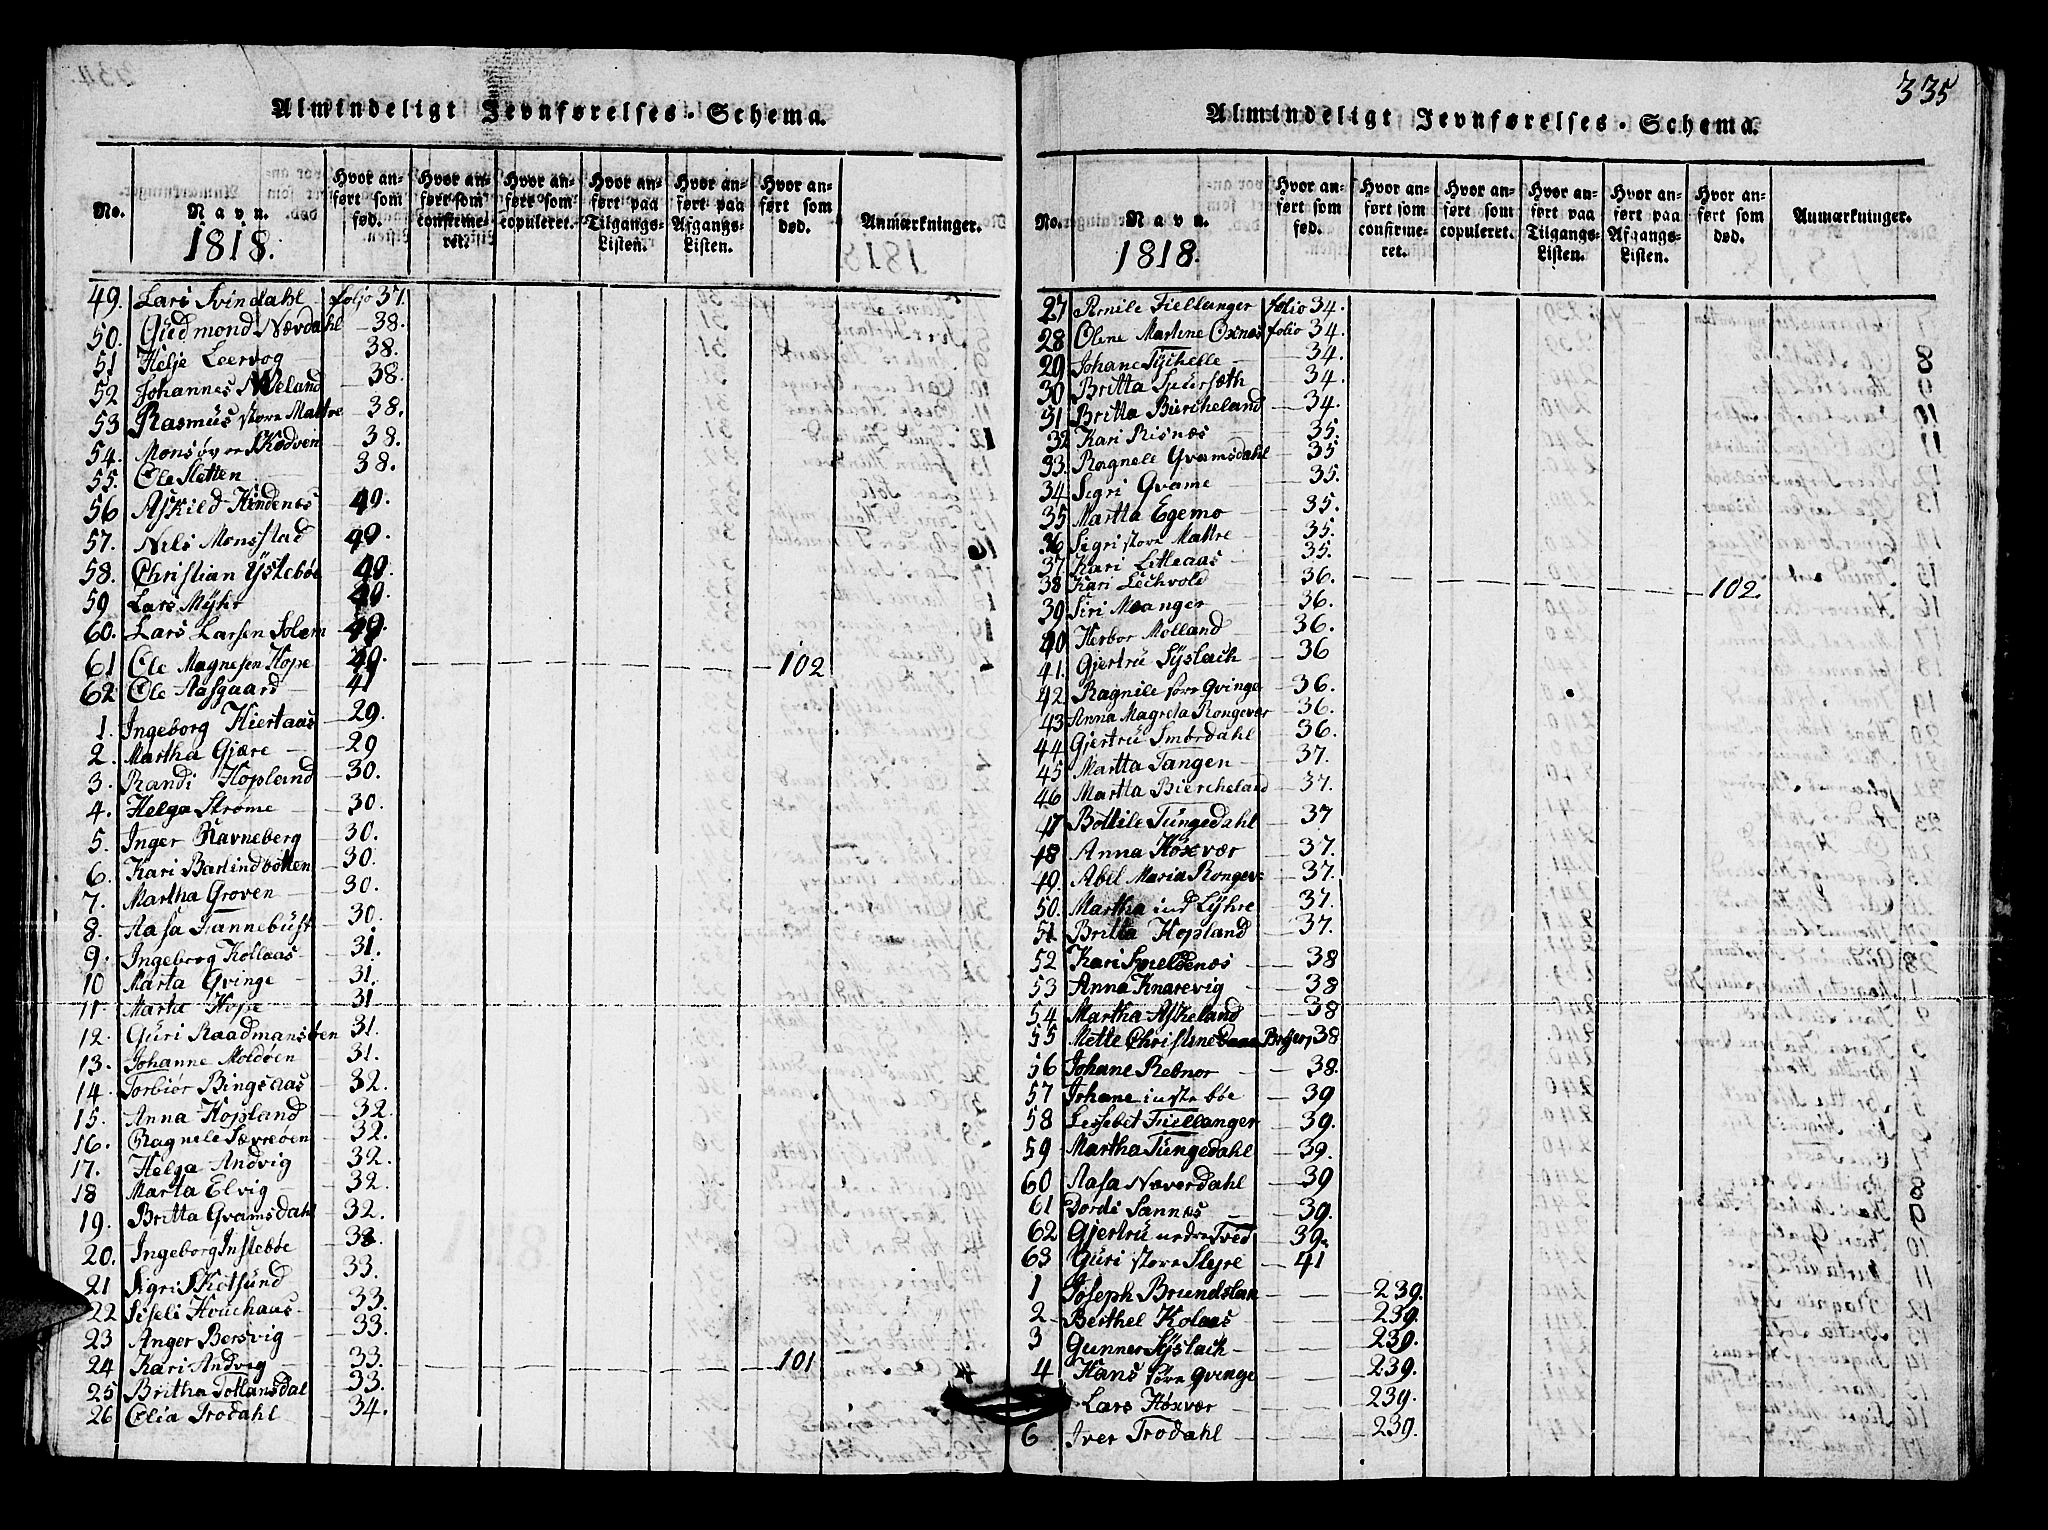 Almindeligt Jevnførelses-Schema.
No. Navn. 1818. Hvor anført som fød. Hvor anført som confirmeret. Hvor anført som copuleret. Hvor anført paa Tilgangs-Listen. Hvor anført paa Afgangs-Listen. Hvor anført som død. Anmærkninger.
49. Lars Svindahl folio 37.
50. Gudmond Nævdahl 38.
51 Helje Leervog 38.
52 Johannes Næland 38.
53 Rasmus store Mattre 38.
54. Mons øvre Kødvin 38.
55. Ole Sletten 38.
56 Askild Hindenes 40.
57. Nils Monsstad 40.
58. Christian Ystebøe 40.
59 Lars Myhr 40.
60. Lars Larsen Solem 40.
61 Ole Magnesen Hope 40. 102
62 Ole Aasgaard 41
1. Ingeborg Hiertaas 29.
2. Martha Gjære 29
3. Randi Hopland 30.
4. Helga Strøme 30.
5. Inger Ravneberg 30.
6. Kari Barlindbotten 30.
7. Martha Groven 30.
8. Aasa Tannebust 30.
9. Ingeborg Kollaas 31.
10 Marta Qvinge 31.
11. Marta Hope 31
12. Guri Raadmansøen 31.
13. Johanne Moldøen 31.
14. Torbiør Bingsaas 32.
15. Anna Hopland 32.
16. Ragnele Sævreøen 32.
17. Helga Andvig 32.
18 Marta Elvig 32.
19. Britta Qvamsdahl 32.
20. Ingeborg Instebøe 33.
21 Sigri Kolsund 33.
22 Siseli Hvuchaus 33.
23 Anger Bersvig 33.
24 Kari Andvog 33. 101
25 Britha Tottansdal 33.
26 Celia Trodahl 34.
335
Almindeligt Jevnførelses-Schema.
No. Navn. 1818. Hvor anført som fød. Hvor anført som confirmeret. Hvor anført som copuleret. Hvor anført paa Tilgangs-Listen. Hvor anført paa Afgangs-Listen. Hvor anført som død. Anmærkninger.
27 Pernile Fiellanger folio 34.
28 Olene Martene Oxnes folio 34.
29 Johane Syshelle 34.
30 Britta Spursæth 34.
31 Britta Bircheland 34.
32 Kari Risnæs 35.
33. Ragnele Qvamsdahl 35
34 Segri Qvame 35.
35 Martta Egemo 35.
36 Sigri store Mattre 35.
37 Kari Litleaas 35.
38 Kari Lechvold 36. 102.
39 Siri Manger 36.
40 Herbor Molland 36.
41. Gjertru Syslach 36
42 Ragnile søre Qvinge 36.
43 Anna Magreta Rongevær 36.
44 Gjertru Smørdahl 36.
45 Martta Tangen 37.
46 Martta Biercheland 37.
47 Bottile Tungedahl 37
48 Anna Høxvær 37.
49. Abel Maria Rongev: 37.
50. Martha ind Lyhre 37.
51 Britta Hopland 37.
52 Kari Smeldenæs 38
53 Anna Knarevig 38
54 Martha Askeland 38
55 Mette Christine Daae Bejer 38
56 Johane Rebnor 38.
57 Johane instebøe 39
58 Lessebet Fiellanger 39.
59 Martha Tungedahl 39.
60 Aasa Næverdahl 39
61 Dordi Sannæs 39.
62 Gjertru nedre Tved 39.
63 Guri store Steyre 41
1 Joseph Brundslan 239.
2 Berthel Kolaas 239.
3 Gunner Syslach 239.
4 Hans søre Qvinge 239.
Lars Høxvær 239.
6 Iver Trodahl 239.